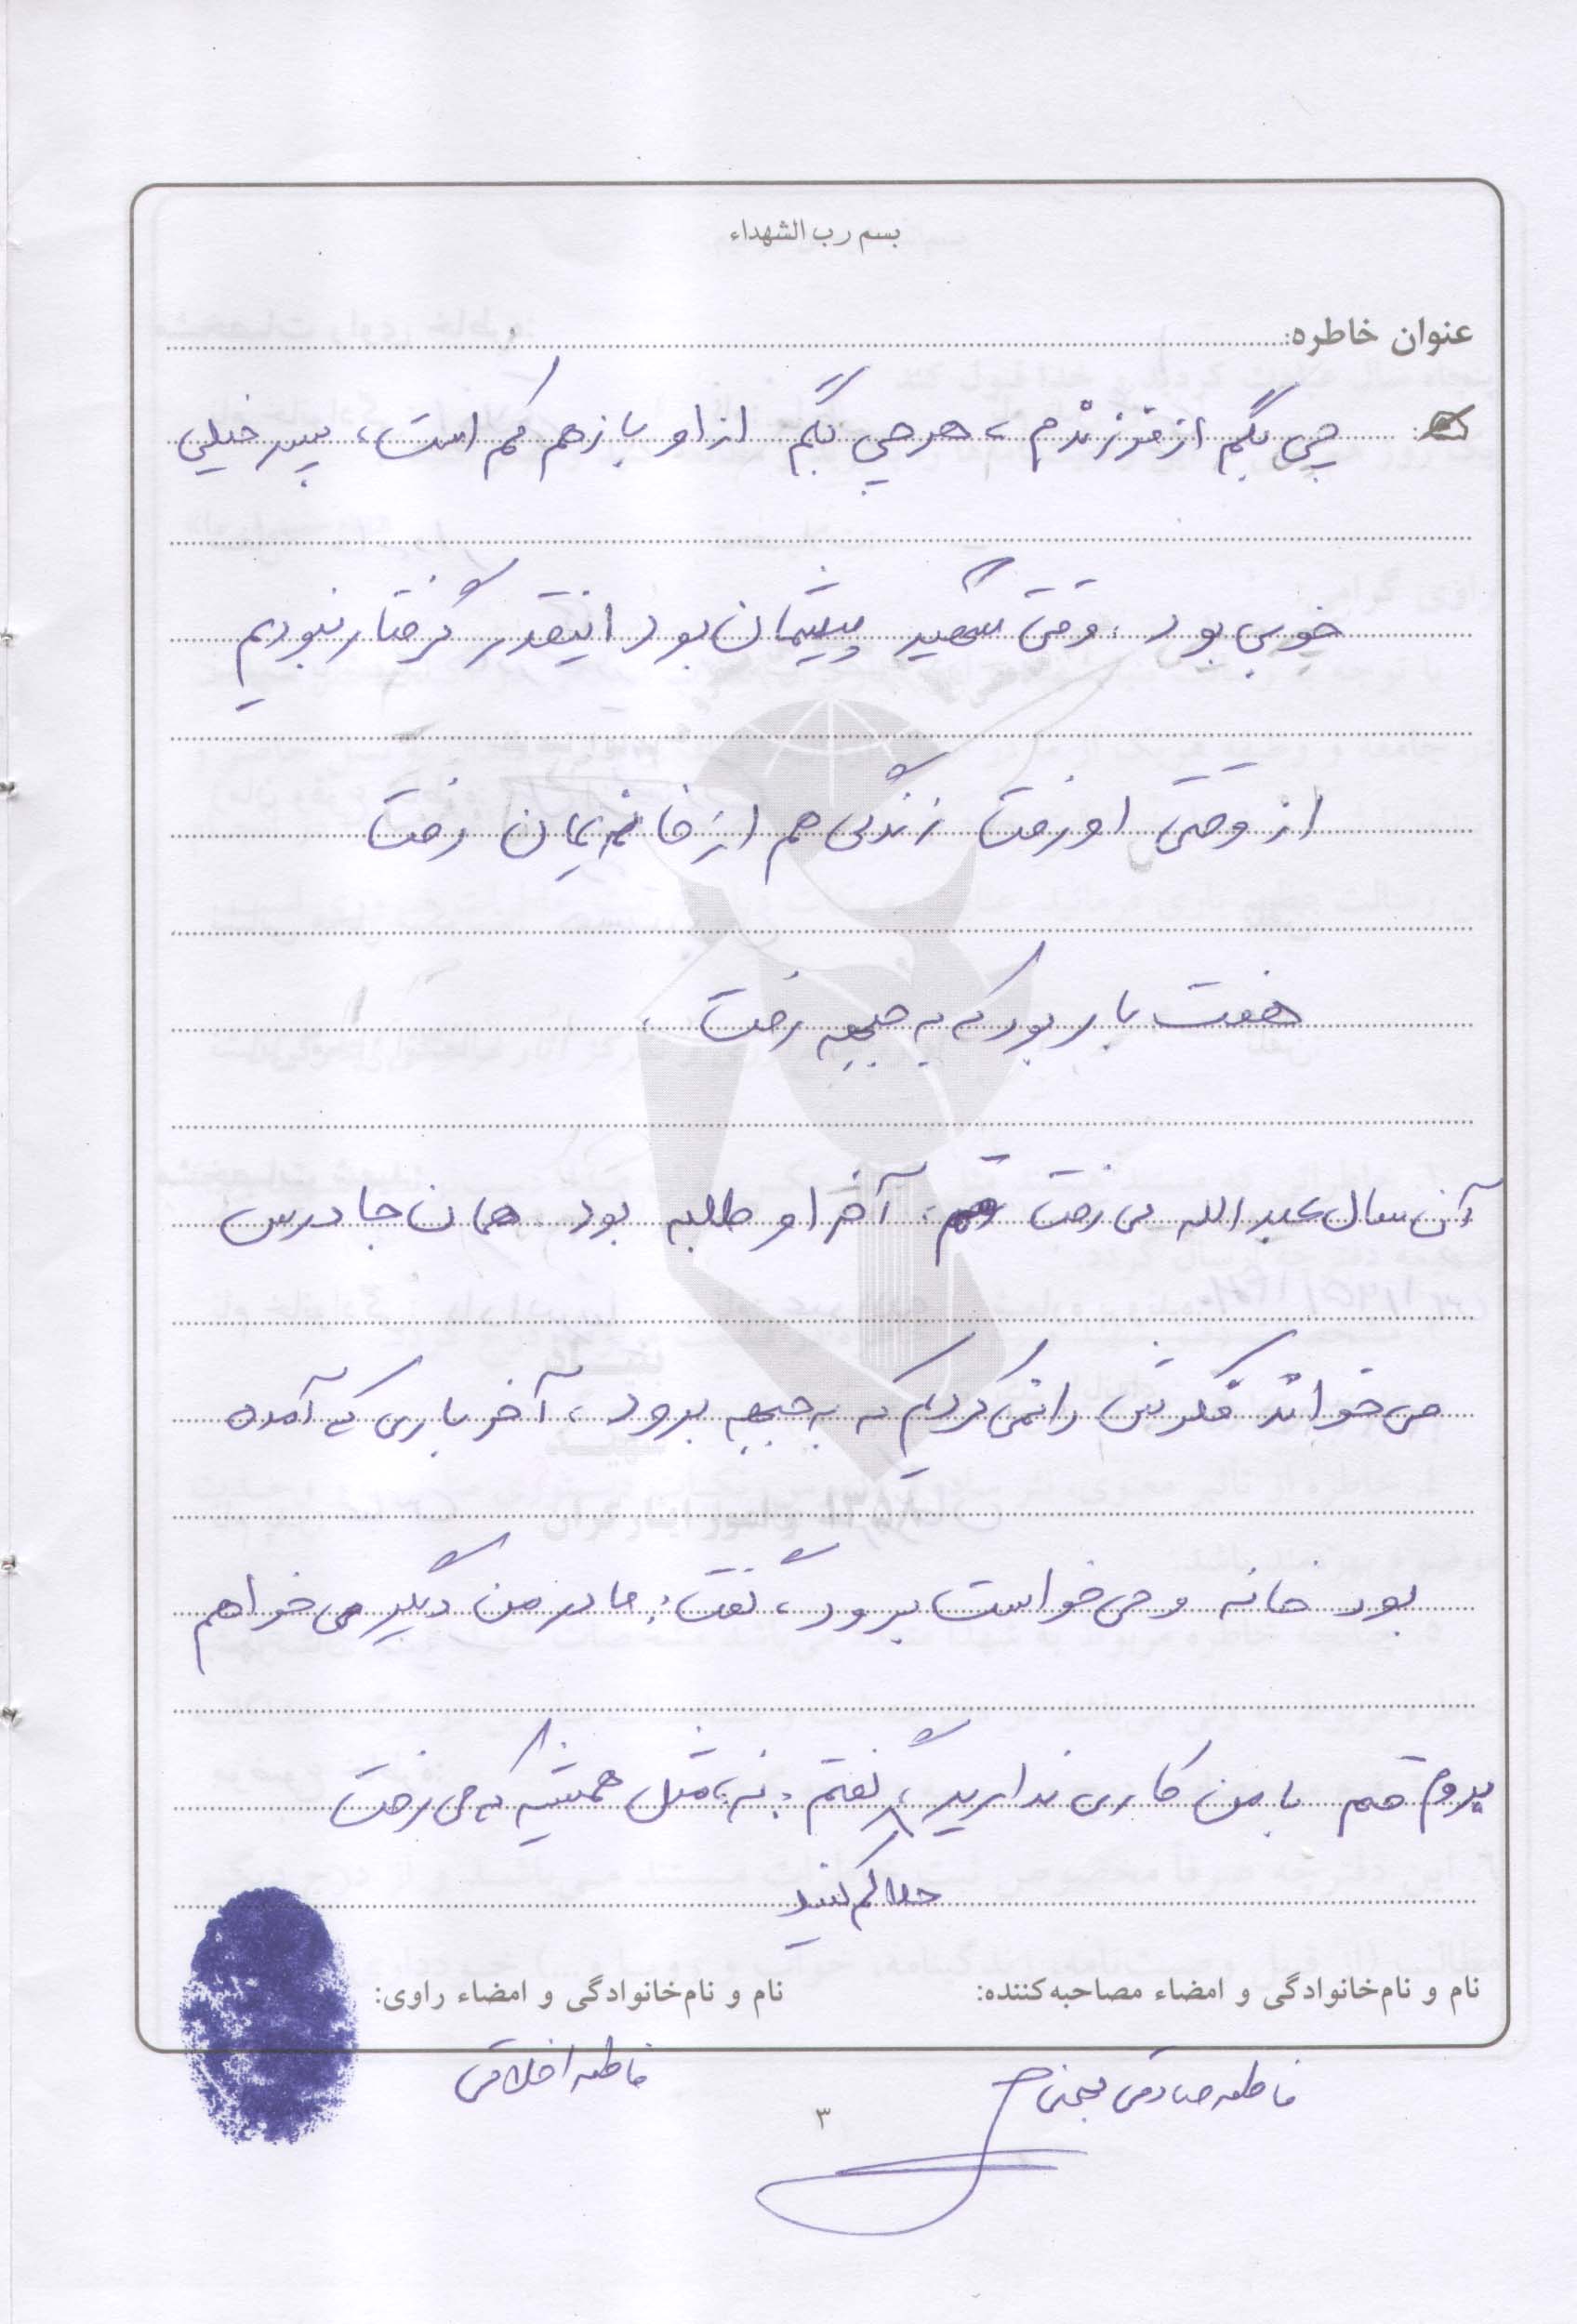 بسم رب الشهداء
عنوان خاطره:
چی بگم از فرزندم، هر چی بگم از او باز هم کم است، پسر خیلی
خوبی بود. وقتی شهید پیشمان بود اینقدر گرفتار نبودیم
از وقتی او رفت زندگی هم از خانه یمان رفت
هفت بار بود که به جبهه رفت.
آن سال عبدالله می رفت قم، آخر او طلبه بود همان جا درس
می خواند فکرش را نمی کردیم که به جبهه برود، آخر باری که آمده
بود خانه و می خواست برود، گفت: مادر من دیگر می خواهم
بروم قم با من کاری ندارید، گفتم: نه، مثل همیشه که می رفت
حلالم کنید
نام و نام‌خانوادگی و امضاء مصاحبه‌کننده: نام و نام‌خانوادگی و امضاء راوی:
فاطمه صادقی فاطمه اخلاقی
۳